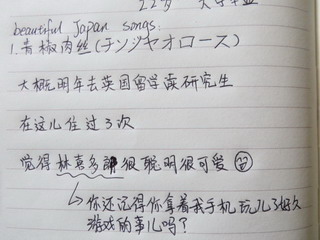 beautiful Japan songs.
1.青椒肉丝(チンジヤオロース)
大概明年去英国留学读研究生
在这儿住过3次
觉得林喜多很聪明很可爱
↳你还记得你拿着我手机玩儿了好久
游戏的事儿吗？